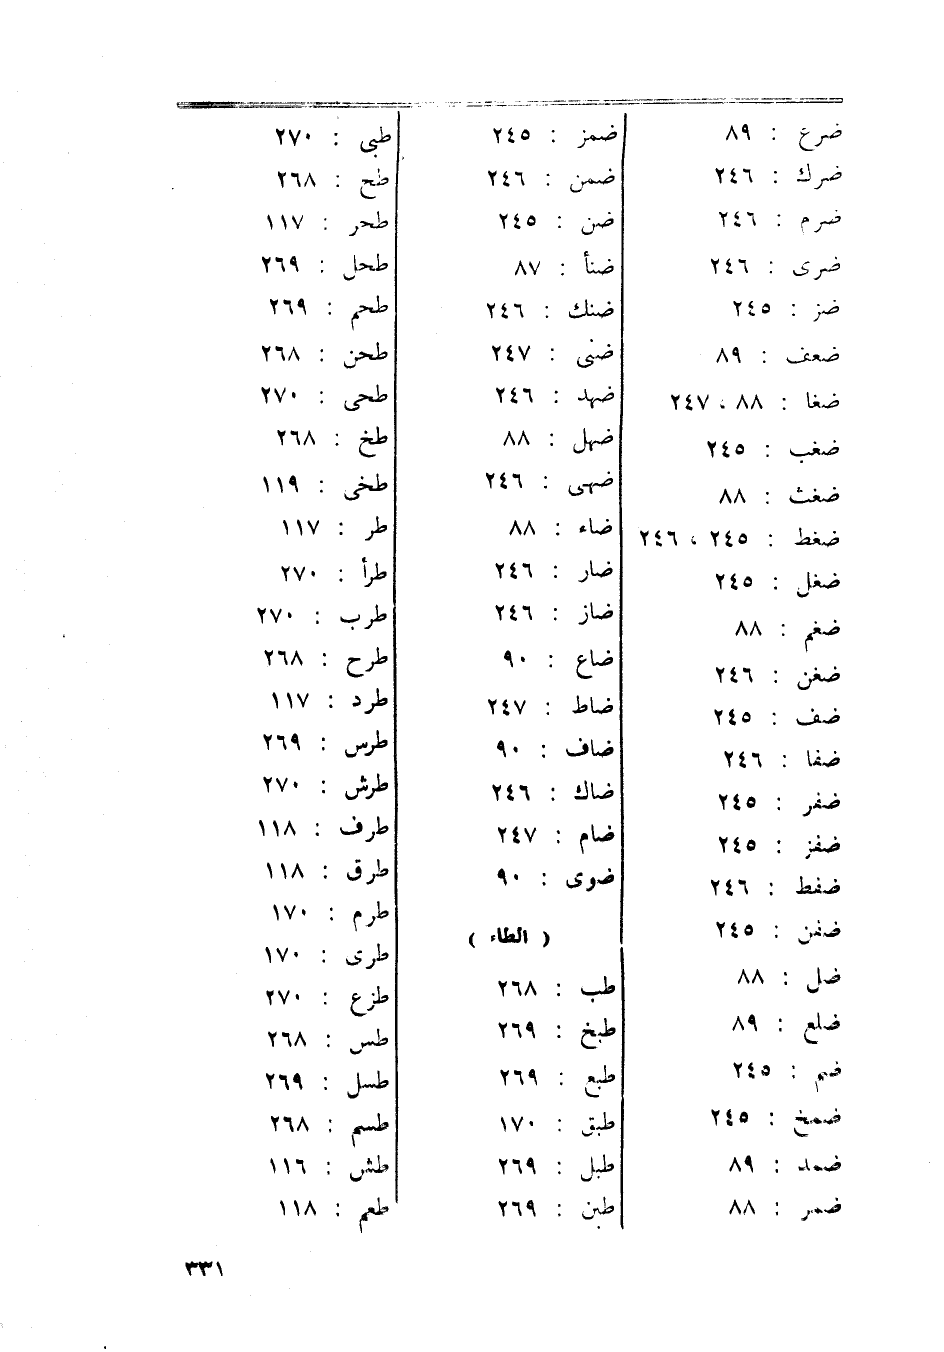 ضرع : ٨٩
ضرك : ٢٤٦
ضرم : ٢٤٦
ضرى : ٢٤٦
ضز : ٢٤٥
ضعف : ٨٩
ضغا : ٨٨ ، ٢٤٧
ضغب : ٢٤٥
ضغث : ٨٨
ضغط : ٢٤٥ ، ٢٤٦
ضغل : ٢٤٥
ضغم : ٨٨
ضغن : ٢٤٦
ضف : ٢٤٥
ضفا : ٢٤٦
ضفر : ٢٤٥
ضفز : ٢٤٥
ضفط : ٢٤٦
ضفن : ٢٤٥
ضل : ٨٨
ضلع : ٨٩
ضم : ٢٤٥
ضمخ : ٢٤٥
ضمد : ٨٩
ضمر : ٨٨
ضمز : ٢٤٥
ضمن : ٢٤٦
ضن : ٢٤٥
ضنأ : ٨٧
ضنك : ٢٤٦
ضنى : ٢٤٧
ضهد : ٢٤٦
ضهل : ٨٨
ضهى : ٢٤٦
ضاء : ٨٨
ضار : ٢٤٦
ضاز : ٢٤٦
ضاع : ٩٠
ضاط : ٢٤٧
ضاف : ٩٠
ضاك : ٢٤٦
ضام : ٢٤٧
ضوى : ٩٠
( الطاء )
طب : ٢٦٨
طبخ : ٢٦٩
طبع : ٢٦٩
طبق : ١٧٠
طبل : ٢٦٩
طبن : ٢٦٩
طبى : ٢٧٠
طح : ٢٦٨
طحر : ١١٧
طحل : ٢٦٩
طحم : ٢٦٩
طحن : ٢٦٨
طحى : ٢٧٠
طخ : ٢٦٨
طخى : ١١٩
طر : ١١٧
طرأ : ٢٧٠
طرب : ٢٧٠
طرح : ٢٦٨
طرد : ١١٧
طرس : ٢٦٩
طرش : ٢٧٠
طرف : ١١٨
طرق : ١١٨
طرم : ١٧٠
طرى : ١٧٠
طزع : ٢٧٠
طس : ٢٦٨
طسل : ٢٦٩
طسم : ٢٦٨
طش : ١١٦
طعم : ١١٨
٣٣١